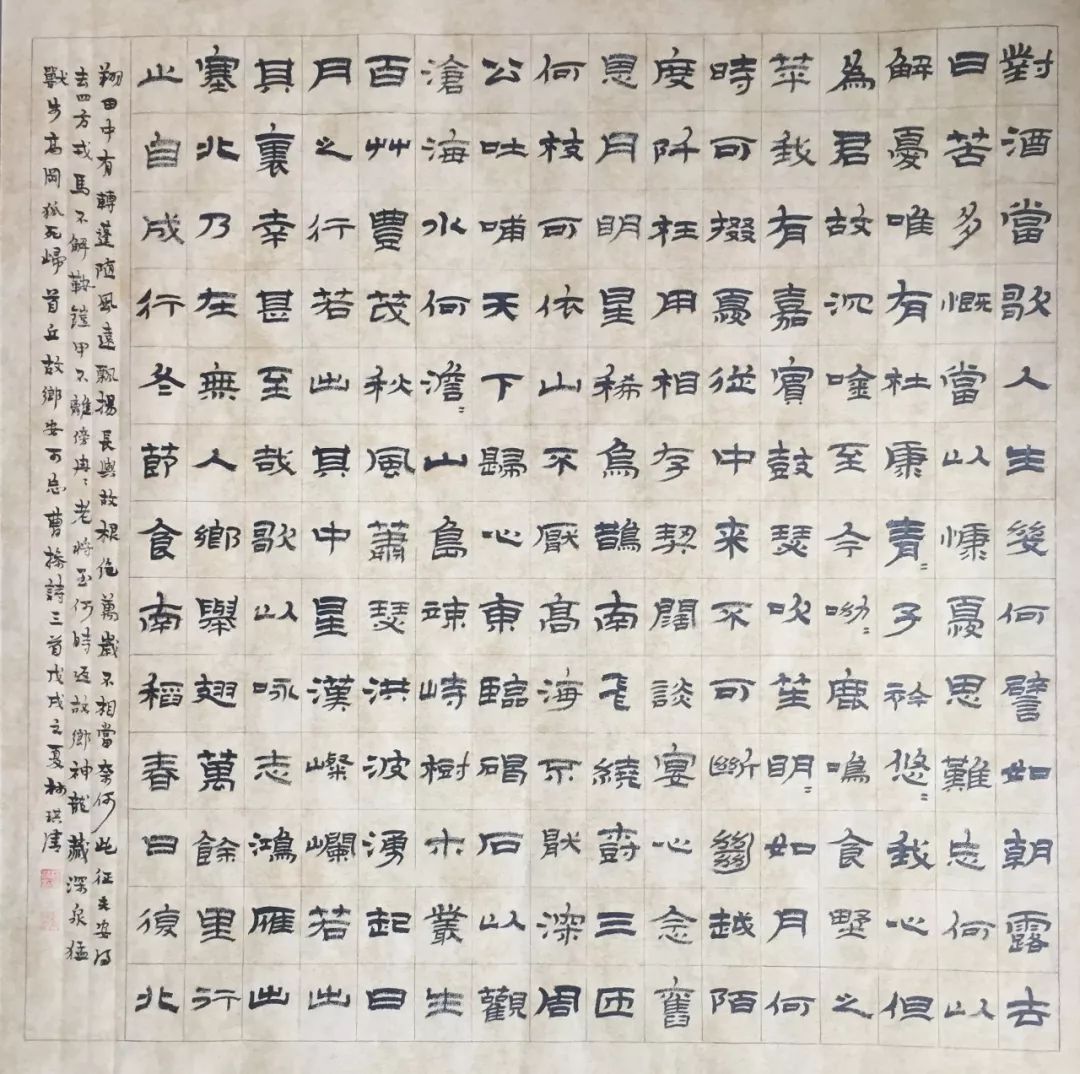 對酒當歌人生幾何譬如朝露去
日苦多慨當以慷憂思難忘何以
解憂唯有杜康青〻子衿悠〻我心但
為君故沉唫至今呦〻鹿鳴食野之
苹我有嘉賓〻鼓瑟吹笙明〻如月何
時可掇憂從中来不可斷絕越陌
度阡枉用相存契闊談宴心念舊
恩月明星稀烏鵲南飛繞樹三匝
何枝可依山不厭高海不厭深周
公吐哺天下歸心東臨碣石以觀
滄海水何澹〻山島竦峙樹木叢生
百艸豐茂秋風蕭瑟洪波湧起日
月之行若出其中星漢燦爛若出
其裏幸甚至哉歌以咏志鴻雁出
塞北乃在無人鄉舉翅萬餘里行
止自成行冬節食南稻春日復北
翔田中有轉蓬隨風遠飄揚長與故根絕萬歲不相當奈何此征夫安得
去四方戎馬不解鞍鎧甲不離傍冉〻老將至何時返故鄉神龍藏深泉猛
獸步高岡狐死歸首丘故鄉安可忘曹操詩三首戊戌之夏